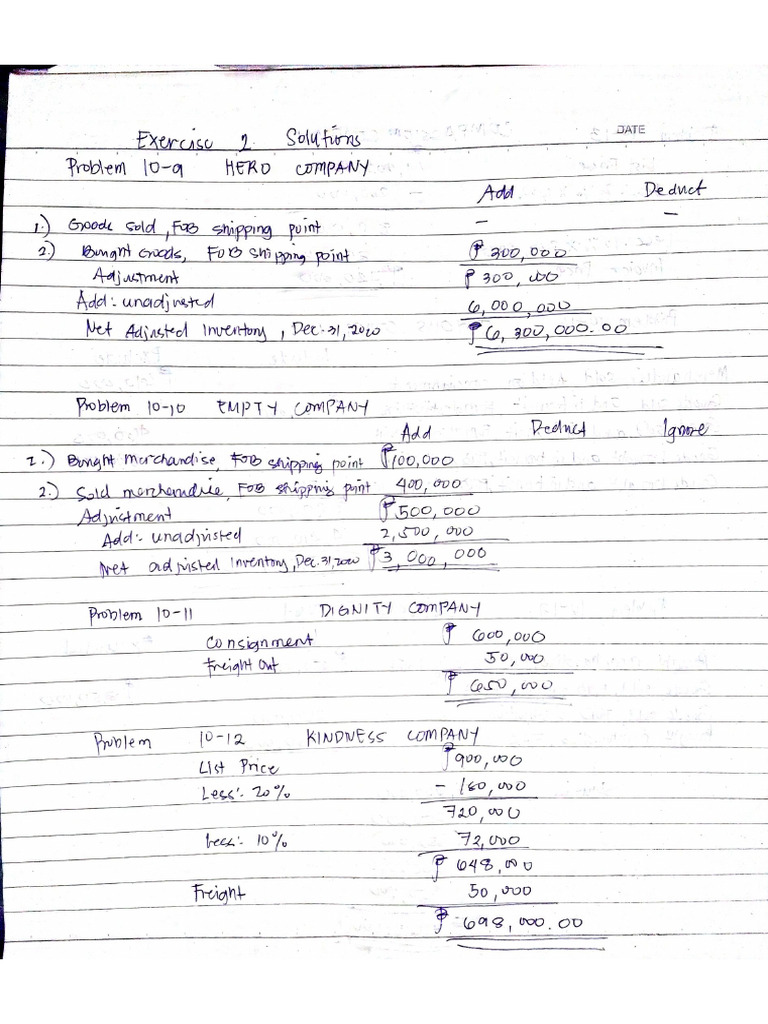 DATE
Exercise 2 Solutions
Problem 10-9 HERO COMPANY
Add Deduct
1.) Goods sold, FOB shipping point - -
2.) Bought Goods, FOB shipping point ₱ 300,000
Adjustment ₱ 300,000
Add: unadjusted 6,000,000
Net Adjusted Inventory, Dec. 31, 2020 ₱ 6,300,000.00
Problem 10-10 EMPTY COMPANY
Add Deduct Ignore
1.) Bought merchandise, FOB shipping point ₱100,000
2.) Sold merchandise, FOB shipping point 400,000
Adjustment ₱500,000
Add: unadjusted 2,500,000
Net adjusted inventory, Dec. 31, 2020 ₱3,000,000
Problem 10-11 DIGNITY COMPANY
Consignment ₱ 600,000
Freight Out 50,000
₱ 650,000
Problem 10-12 KINDNESS COMPANY
List Price ₱900,000
Less: 20% - 180,000
720,000
Less: 10% 72,000
₱ 648,000
Freight 50,000
₱ 698,000.00